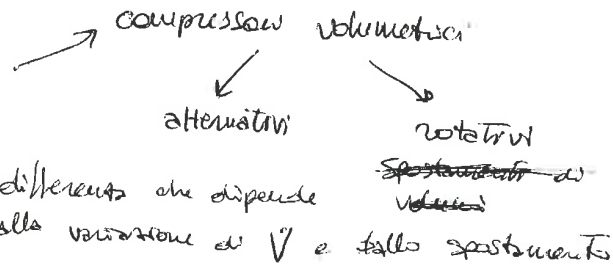 compressori volumetrici
alternativi
rotativi
spostamento di
volumi
differenza che dipende
alla variazione di V e dallo spostamento